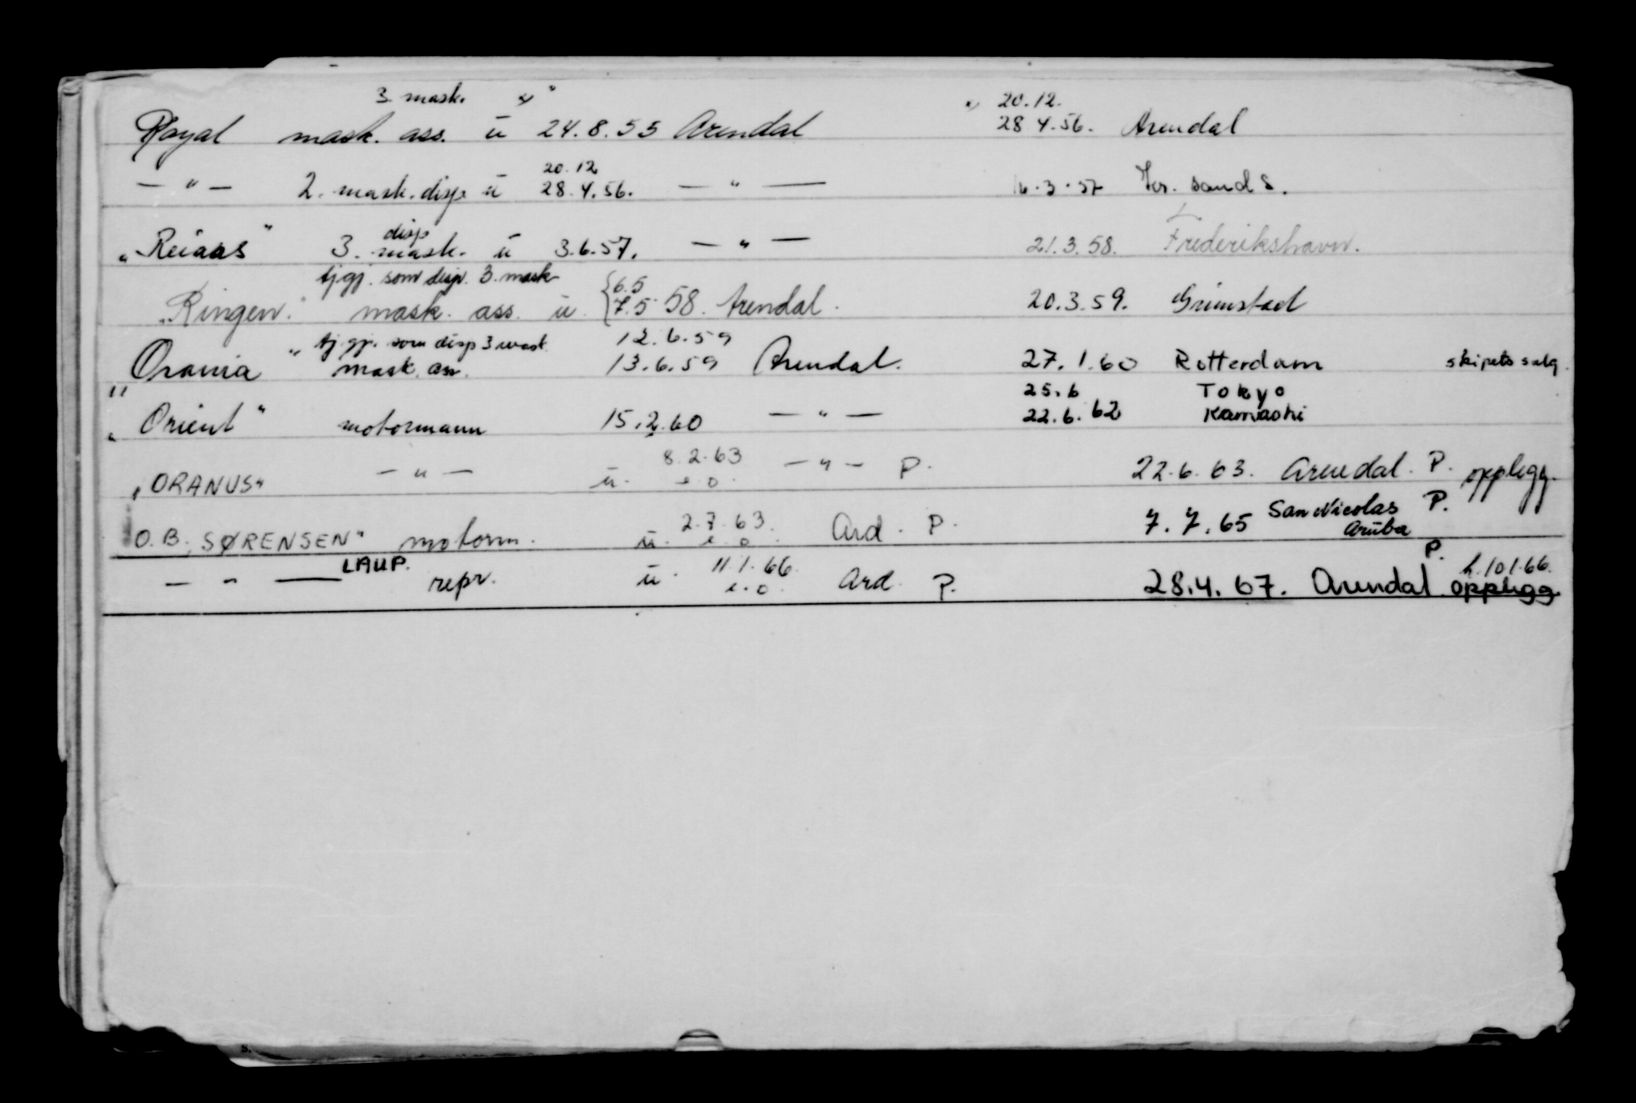 3. mask. " 20.12.
Royal mask. ass. ü 24.8.55 Arendal 28 4.56. Arendal
20.12
— " — 2. mask. disp ü 28.4.56. — " — 16.3.57 Kr. sand S.
disp
"Reiaas" 3. mask. ü 3.6.57. — " — 21.3.58. Frederikshavn.
tj.gj. som disp. 3. mask 6.5
"Ringen" mask. ass. ü 7.5 58. Arendal. 20.3.59. Grimstad
tj.gj. som disp 3 mask. 12.6.59
"Orania" mask. ass. 13.6.59 Arendal. 27.1.60 Rotterdam skipets salg.
25.6 Tokyo
"Orient" motormann 15.2.60 — " — 22.6.62 Kamaishi
8.2.63
"ORANUS" — " — ü. e.o. — " — P. 22.6.63. Arendal. P. opplegg.
2.7.63. San Nicolas P.
O.B. SØRENSEN" motorm. ü. e.o. Ard. P. 7.7.65 Aruba
LAUP. 11.1.66. P. h.10.1.66.
— " — repr. ü. e.o. Ard. P. 28.4.67. Arendal. opplegg